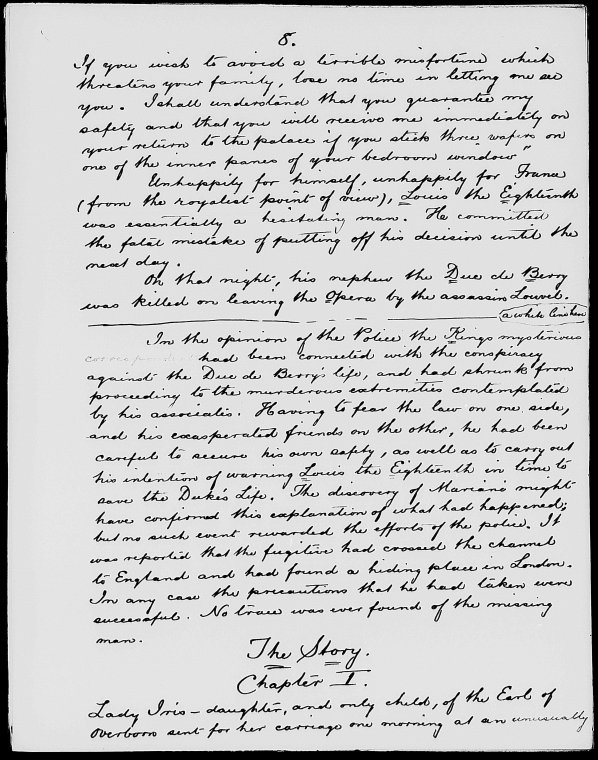 8.
If you wish to avoid a terrible misfortune which
threatens your family, lose no time in letting me see
you. I shall understand that you guarantee my
safety and that you will receive me immediately on
your return to the palace if you stick three wafers on
one of the inner panes of your bedroom window"
Unhappily for himself, unhappily for France
(from the royalist point of view), Louis the Eighteenth
was essentially a hesitating man. He committed
the fatal mistake of putting off his decision until the
next day.
On that night, his nephew the Duc de Berry
was killed on leaving the Opera by the assassin Louvel.
(a white line here
In the opinion of the Police the Kings mysterious
correspondent had been connected with the conspiracy
against the Duc de Berry's life, and had shrunk from
proceeding to the murderous extremities contemplated
by his associates. Having to fear the law on one side,
and his exasperated friends on the other, he had been
careful to secure his own safety, as well as to carry out
his intention of warning Louis the Eighteenth in time to
save the Duke's Life. The discovery of Mariani might
have confirmed this explanation of what had happened;
but no such event rewarded the efforts of the police. It
was reported that the fugitive had crossed the channel
to England and had found a hiding place in London.
In any case the precautions that he had taken were
successful. No trace was ever found of the missing
man.
The Story.
Chapter I.
Lady Iris - daughter, and only child, of the Earl of
Overborn sent for her carriage one morning at an unusually